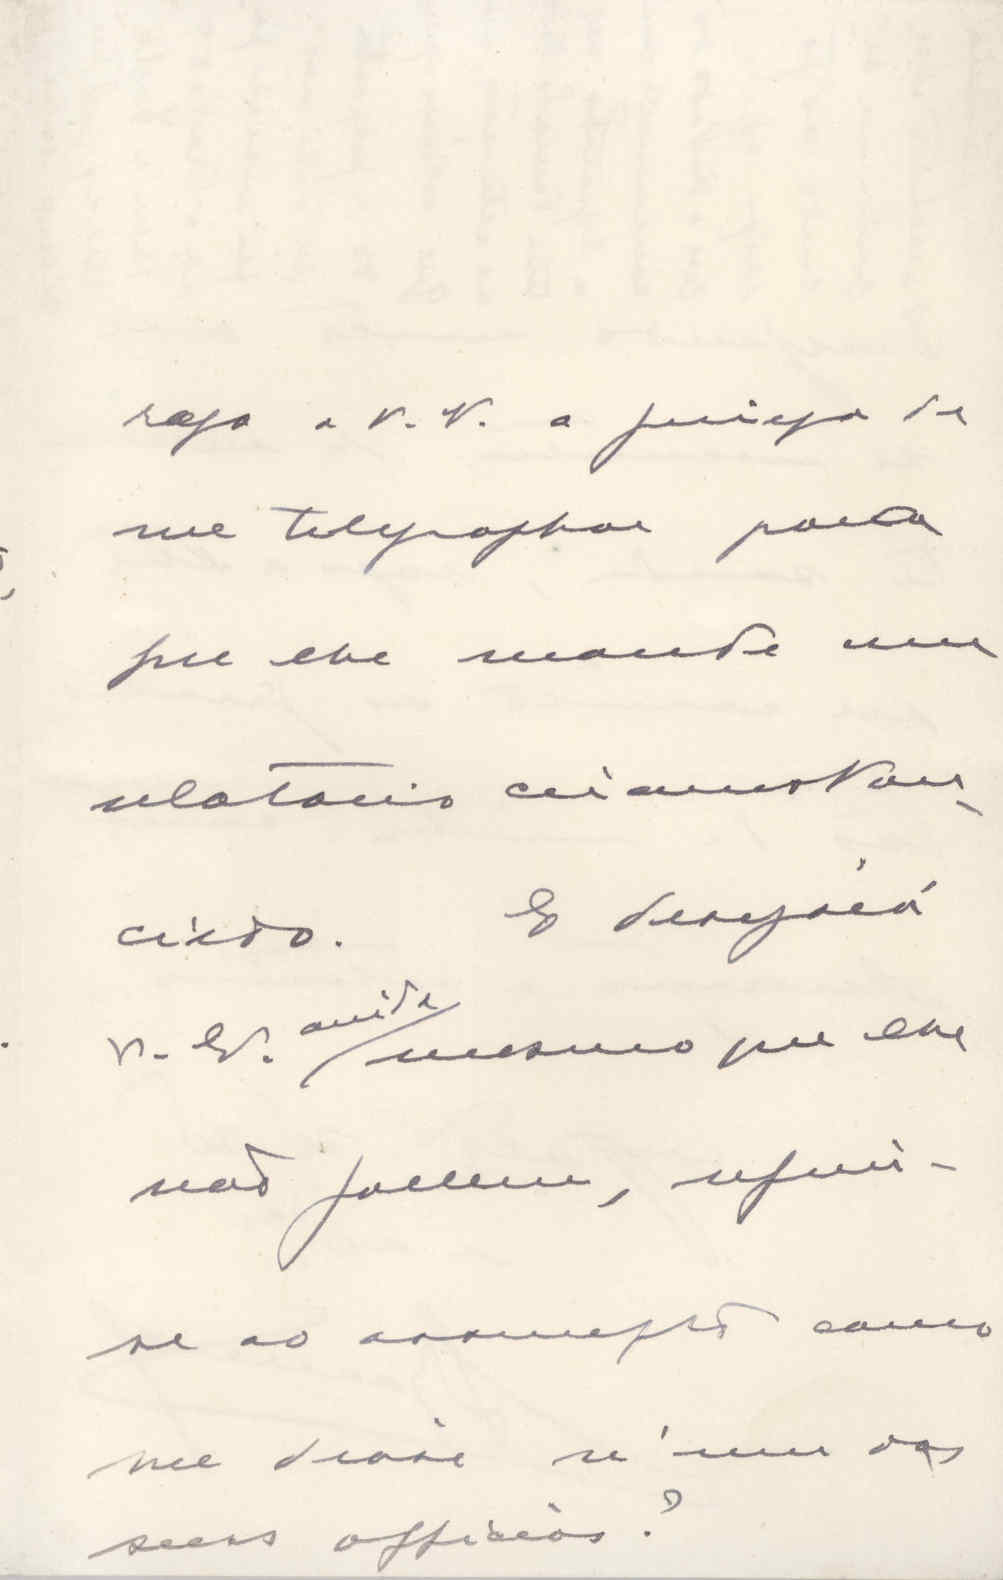 rogo a V. E. a fineza de
me telegraphar para
que elle mande um
relatorio circumstan-
ciado. E desejará
V. E. ainda mesmo que elle
não fallem, refira-
se ao assumpto como
me disse n'um dos
seus officios?